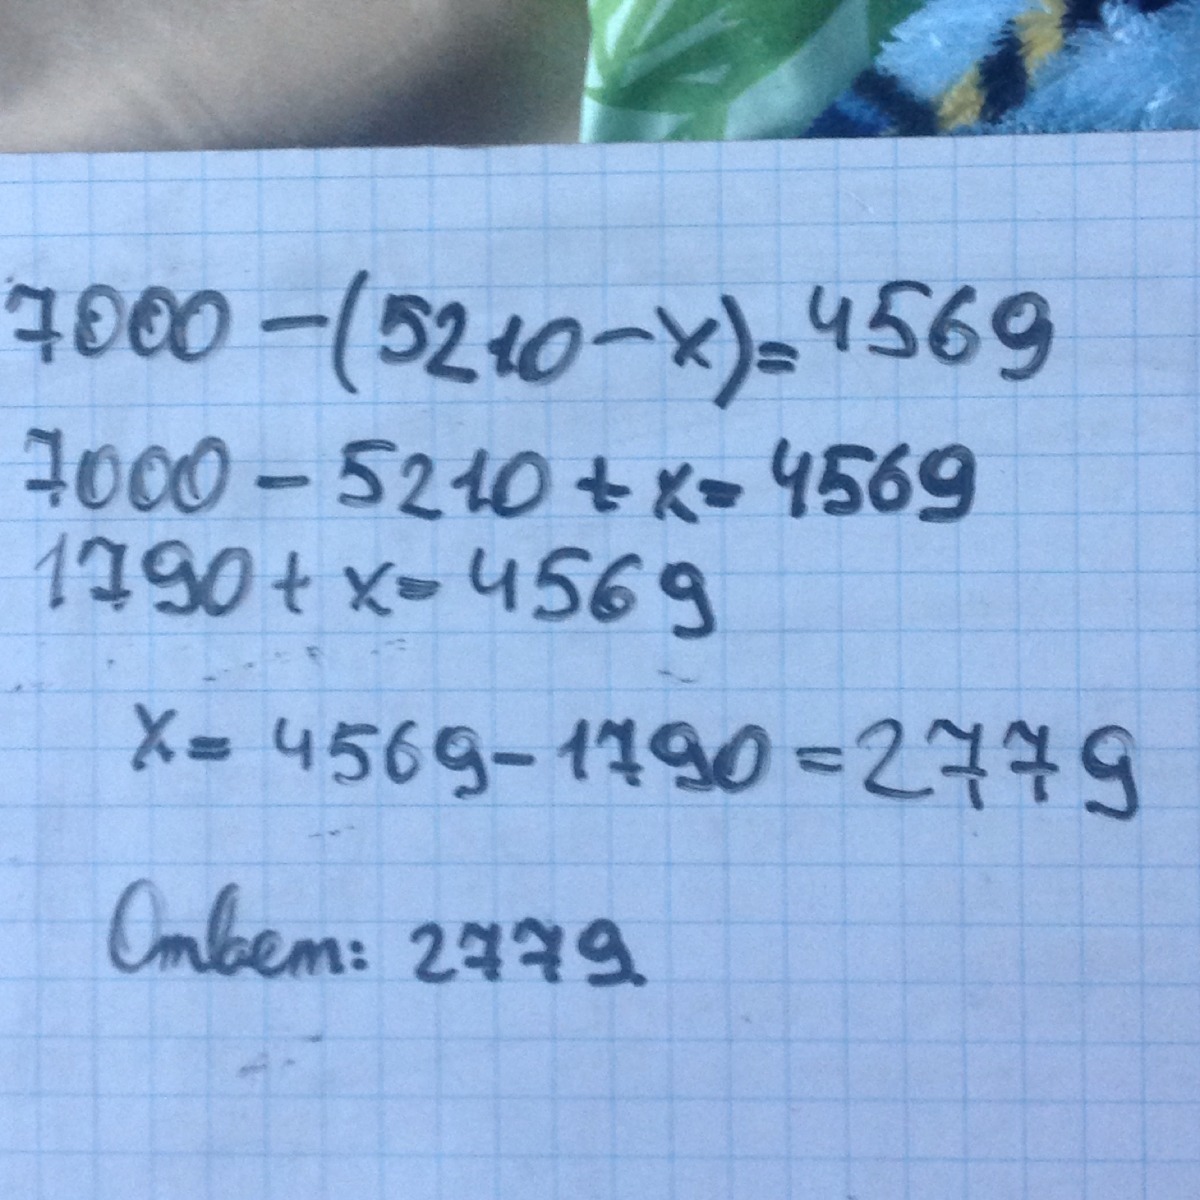 7000 - (5210 - x) = 4569
7000 - 5210 + x = 4569
1790 + x = 4569
x = 4569 - 1790 = 2779
Ответ: 2779.